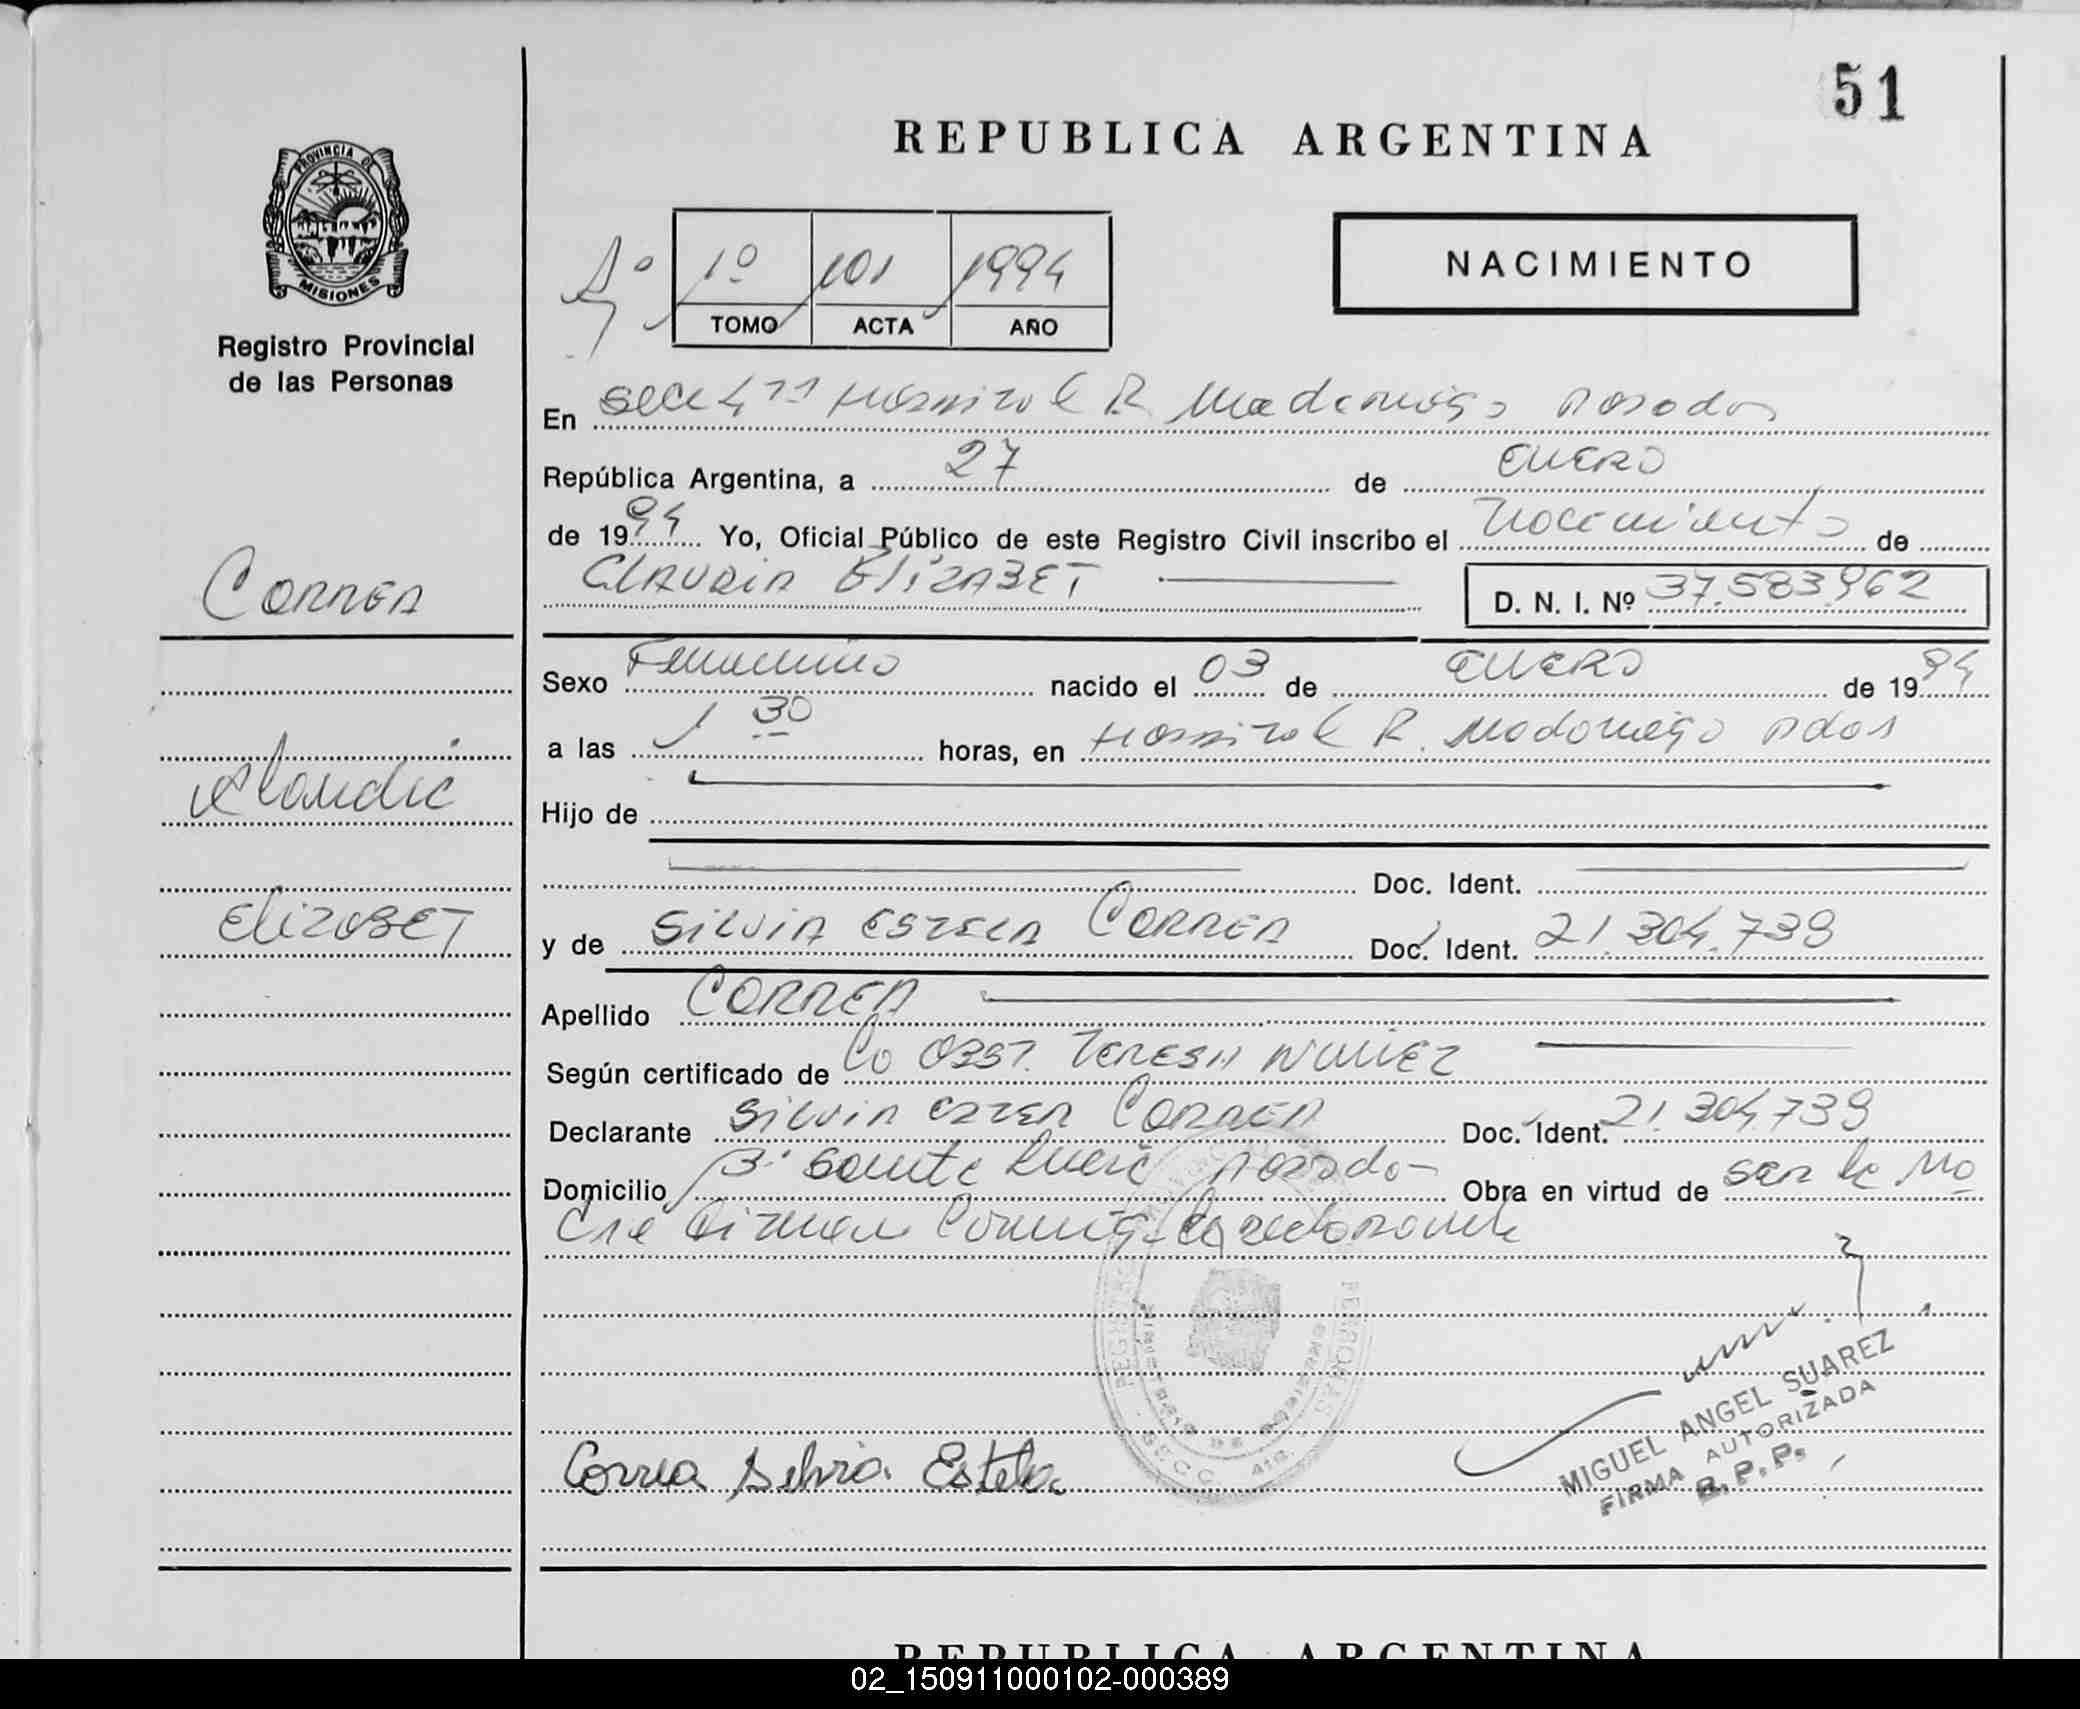 51
REPUBLICA ARGENTINA
PROVINCIA DE
MISIONES
Registro Provincial
de las Personas
1º 101 1994
TOMO ACTA AÑO
NACIMIENTO
En Secc 4ta Hospital R. Madariaga Posadas
República Argentina, a 27 de ENERO
de 1994 Yo, Oficial Público de este Registro Civil inscribo el Nacimiento de
CLAUDIA ELIZABET D. N. I. Nº 37.583.962
CORREA
Sexo Femenino nacido el 03 de ENERO de 1994
a las 1 30 horas, en Hospital R. Madariaga Pdas
Claudia
Hijo de
Doc. Ident.
Elizabet
y de Silvia Estela Correa Doc. Ident. 21.304.739
Apellido CORREA
Según certificado de Obst. Teresa Nuñez
Declarante Silvia Correa Doc. Ident. 21.304.739
Domicilio Bº Santa Lucia Posadas Obra en virtud de ser la Ma
dre
Correa Silvia Estela
MIGUEL ANGEL SUAREZ
FIRMA AUTORIZADA
R.P.P.
REPUBLICA ARGENTINA
02_150911000102-000389